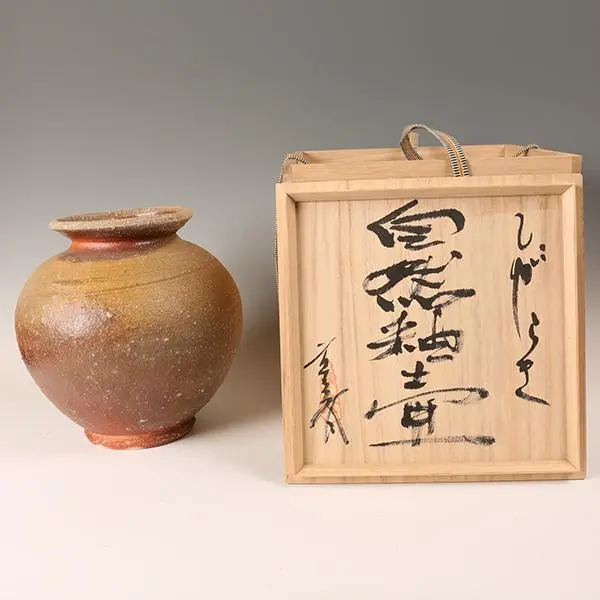 しがらき
自然釉壷